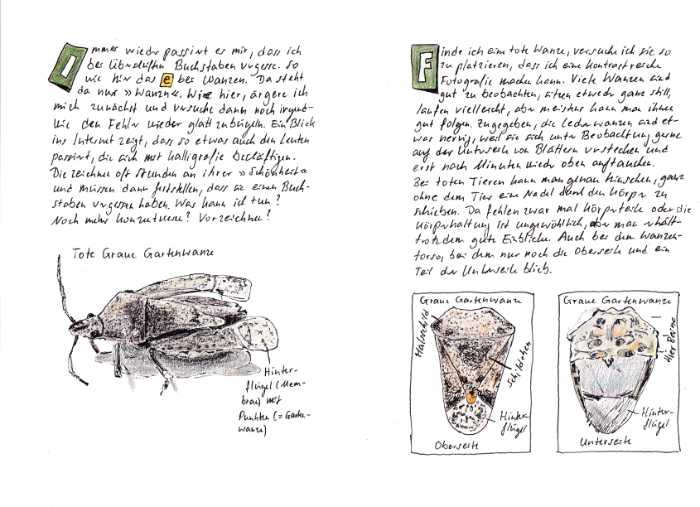 Immer wieder passiert es mir, dass ich
bei Überschriften Buchstaben vergesse. So
wie hier das e bei Wanzen. Da steht
da nur »Wanzn«. Wie hier, ärgere ich
mich zunächst und versuche dann noch irgend-
wie den Fehler wieder glatt zubügeln. Ein Blick
ins Internet zeigt, dass so etwas auch den Leuten
passiert, die sich mit Kalligrafie beschäftigen.
Die zeichnen oft Stunden an ihrer »Schönheit«
und müssen dann feststellen, dass sie einen Buch-
staben vergessen haben. Was kann ich tun?
Noch mehr konzentrieren? Vorzeichnen!
Tote Graue Gartenwanze
Hinter-
flügel (Mem-
bran) mit
Punkten (= Garten-
wanze)
Finde ich eine tote Wanze, versuche ich sie so
zu platzieren, dass ich eine kontrastreiche
Fotografie machen kann. Viele Wanzen sind
gut zu beobachten, sitzen etwede ganz still,
laufen vielleicht, aber meistens kann man ihnen
gut folgen. Zugegeben, die Lederwanzen sind et-
was nervig, weil sie sich unter Beobachtung gerne
auf der Unterseite von Blättern verstecken und
erst nach Minuten wieder oben auftauchen.
Bei toten Tieren kann man genau hinsehen, ganz
ohne dem Tier eine Nadel durch den Körper zu
schieben. Da fehlen zwar mal Körperteile oder die
Körperhaltung ist ungewöhnlich, aber man erhält
trotzdem gute Einblicke. Auch bei dem Wanzen-
torso, bei dem nur noch die Oberseite und ein
Teil der Unterseite blieb.
Graue Gartenwanze
Halsschild
Schildchen
Hinter-
flügel
Oberseite
Graue Gartenwanze
Hier Beine
Hinter-
flügel
Unterseite